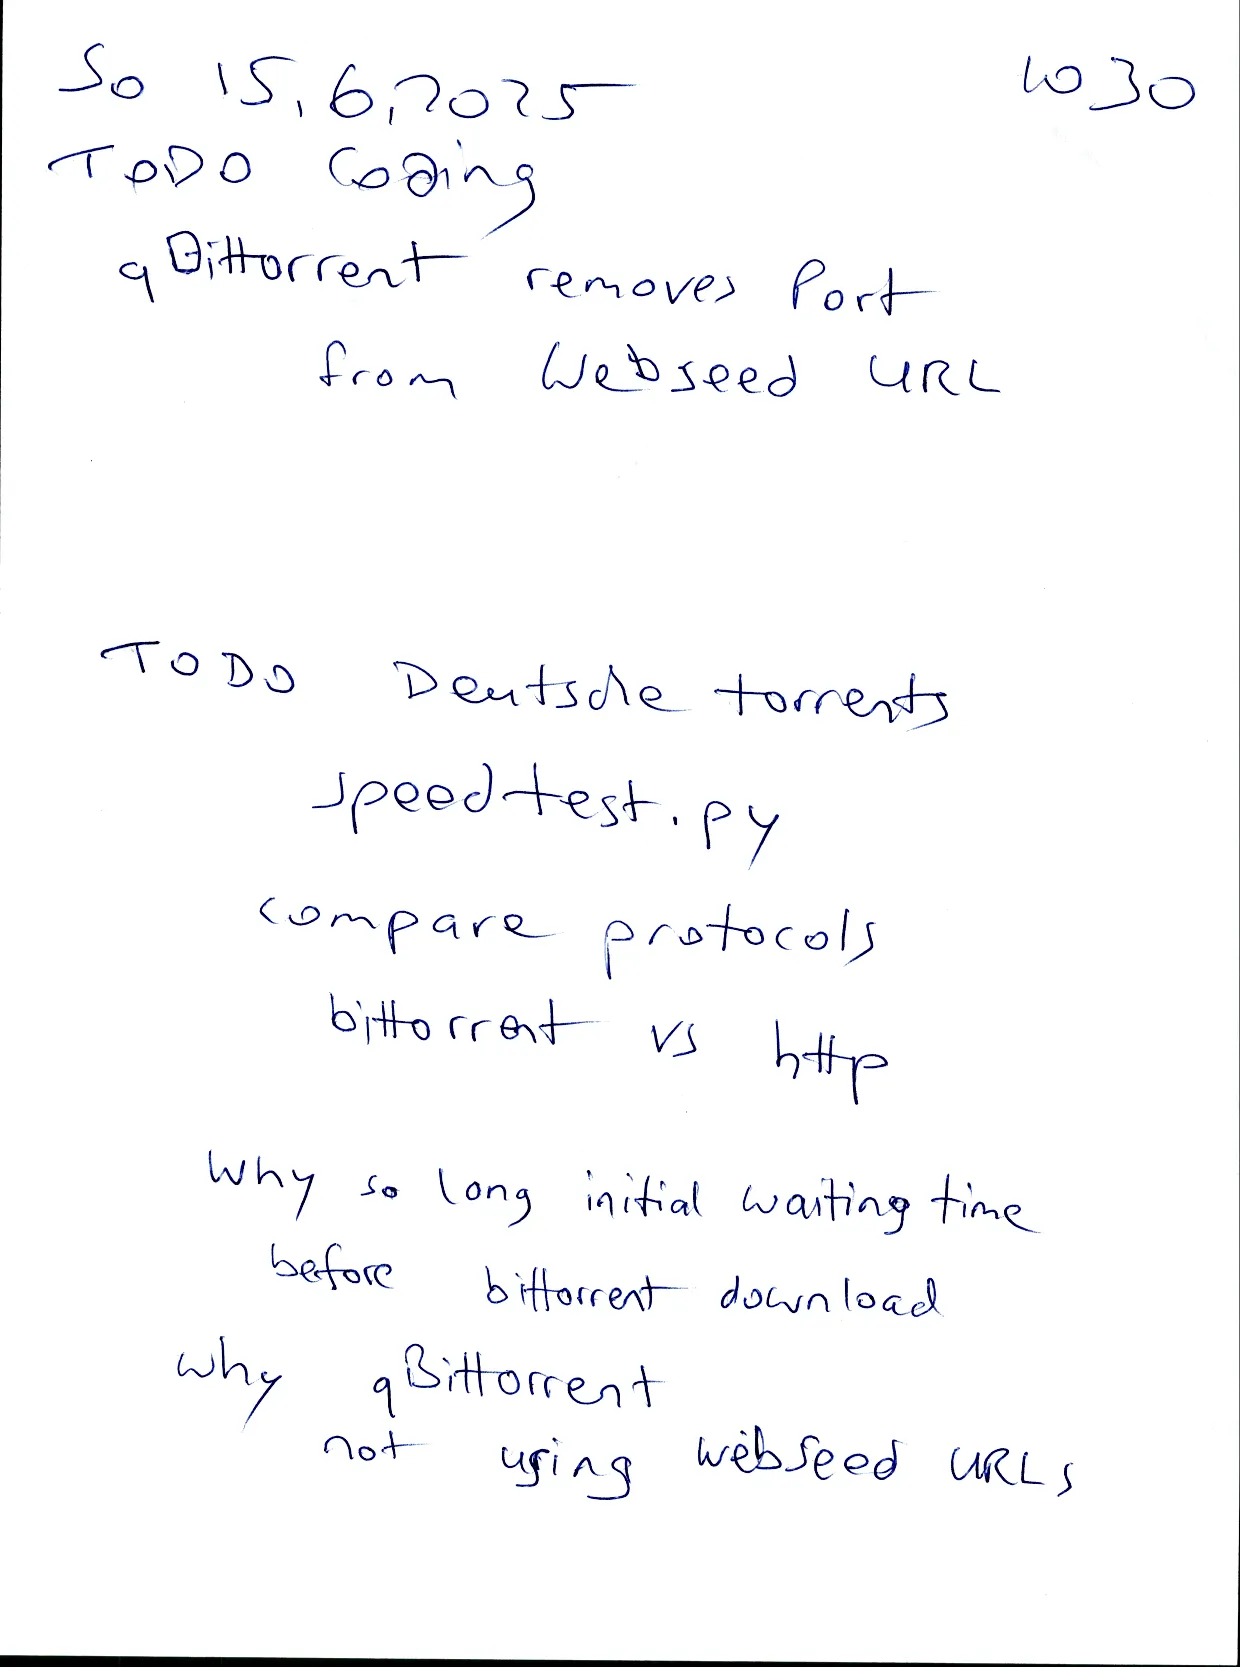 So 15.6.2025 1030
TODO Coding
qBittorrent removes Port
from Webseed URL
TODO Deutsche torrents
speedtest.py
compare protocols
bittorrent vs http
why so long initial waiting time
before bittorrent download
why qBittorrent
not using webseed URLs